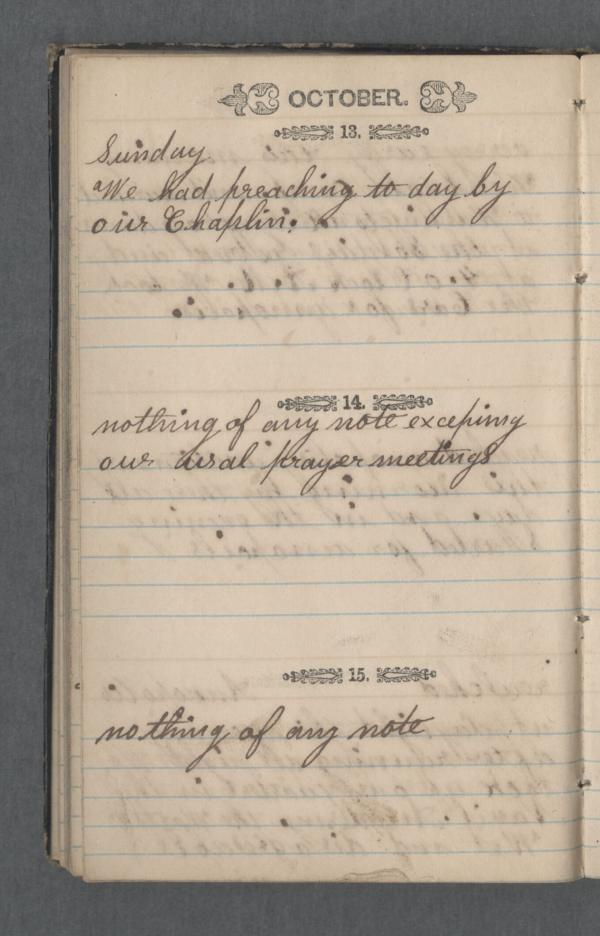 OCTOBER.
13.
Sunday
We had preaching to day by
our Chaplin.
14.
nothing of any note excepting
our usal prayer meetings
15.
nothing of any note